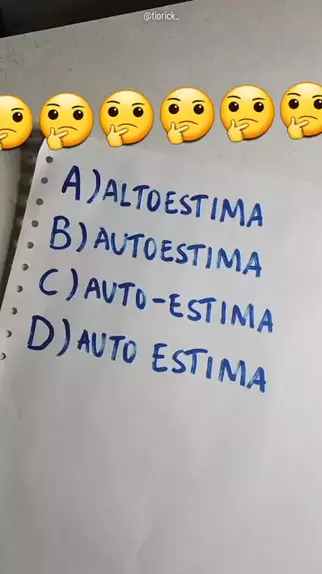 @tiorick_
A) ALTOESTIMA
B) AUTOESTIMA
C) AUTO-ESTIMA
D) AUTO ESTIMA